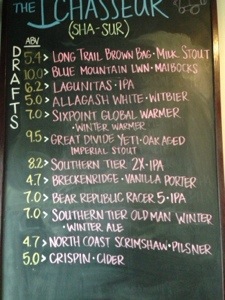 THE ICHASSEUR
(SHA-SUR)
ABV
DRAFTS
5.4> LONG TRAIL BROWN BAG · MILK STOUT
10.0> BLUE MOUNTAIN LWN · MAIBOCKS
6.2> LAGUNITAS · IPA
5.0> ALLAGASH WHITE · WITBIER
7.0> SIXPOINT GLOBAL WARMER
· WINTER WARMER
9.5> GREAT DIVIDE YETI · OAK AGED
IMPERIAL STOUT
8.2> SOUTHERN TIER 2X · IPA
4.7> BRECKENRIDGE · VANILLA PORTER
7.0> BEAR REPUBLIC RACER 5 · IPA
7.0> SOUTHERN TIER OLD MAN WINTER
· WINTER ALE
4.7> NORTH COAST SCRIMSHAW · PILSNER
5.0> CRISPIN · CIDER